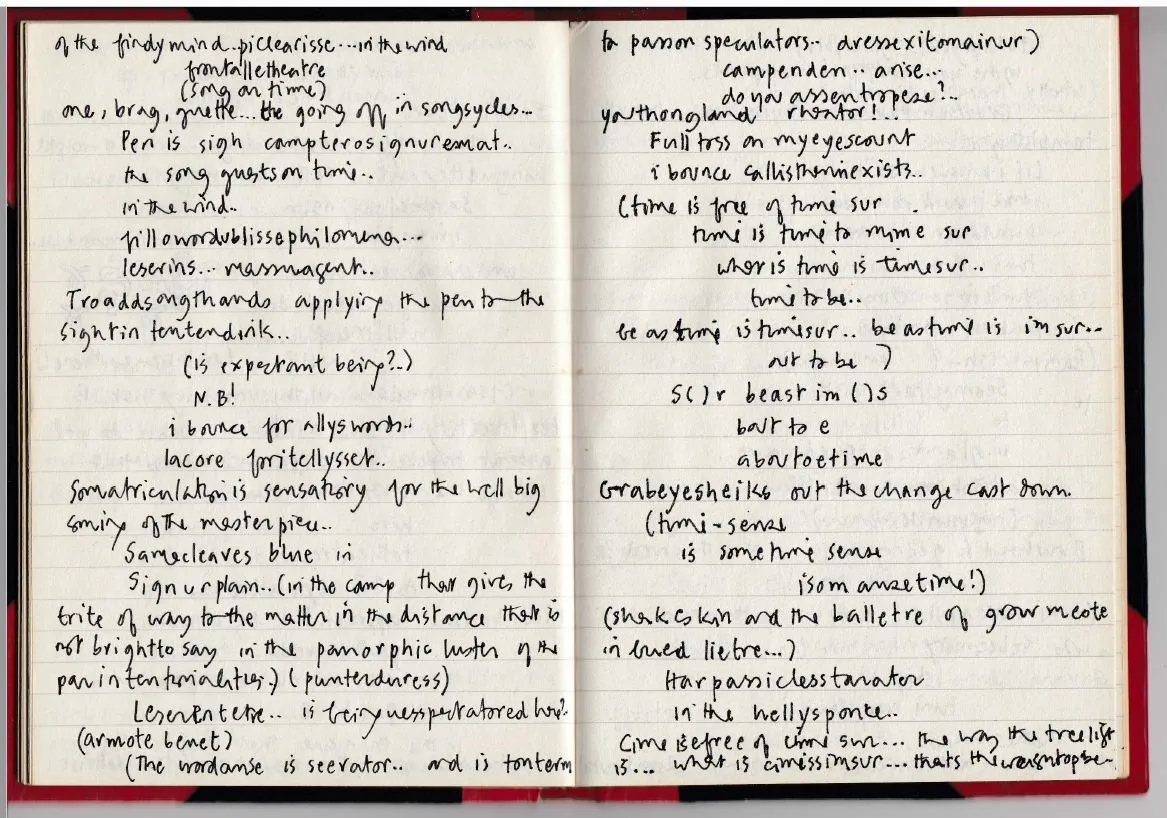 of the findy mind..piclearisse...in the wind
frontalletheatre
(song on time)
one, brag, guette... the going off in songsycles...
Pen is sigh campterosignuremat..
the song guests on time..
in the wind..
fillowordublissephilomena...
leserins... massmagent..
Troaddsongthands applying the pen to the
sightin tentendink..
(is expectant being?..)
N.B!
i bounce for allyswords..
lacore foritellysset..
Somatriculation is sensatory for the well big
soming of the masterpiece..
Samecleaves blue in
Sign ur plain.. (in the camp that gives the
trite of way to the matter in the distance that is
not brightto say in the panorphic luster of the
panintentionalities.) (punterduress)
LeserEntetre.. is being uesspectatored here?
(armote benet)
(The wordanse is seevator.. and is tonterm
to passon speculators.. dressexitomainur)
campenden.. arise...
do you assentropese?...
youthongland rheator!
Full toss on myeyescount
i bounce callisthenniexists..
(time is free of time sur
time is time to mime sur
what is time is timesur..
time to be..
be as time is timesur.. be as time is im sur...
out to be )
S( )r beast im ( )s
bout to e
aboutoetime
Grabeyesheiks out the change cast down.
(time-sense
is sometime sense
isom ansetime!)
(sharkskin and the balletre of grow meote
in lued lietre...)
Harpassiclesstanator
in the hellysponte..
Cime isefree of cime sur... the way the treelist
is... what is cimissimsur... thats the